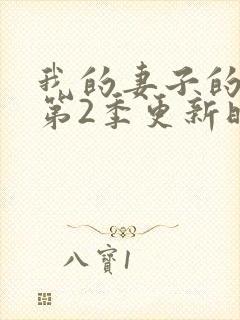 我的妻子的
第2季更新
八寶1